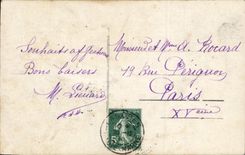 Souhaits affectueux
Bons baisers
Monsieur et Mme A. Rocard
19 Rue Pérignon
Paris
XVeme